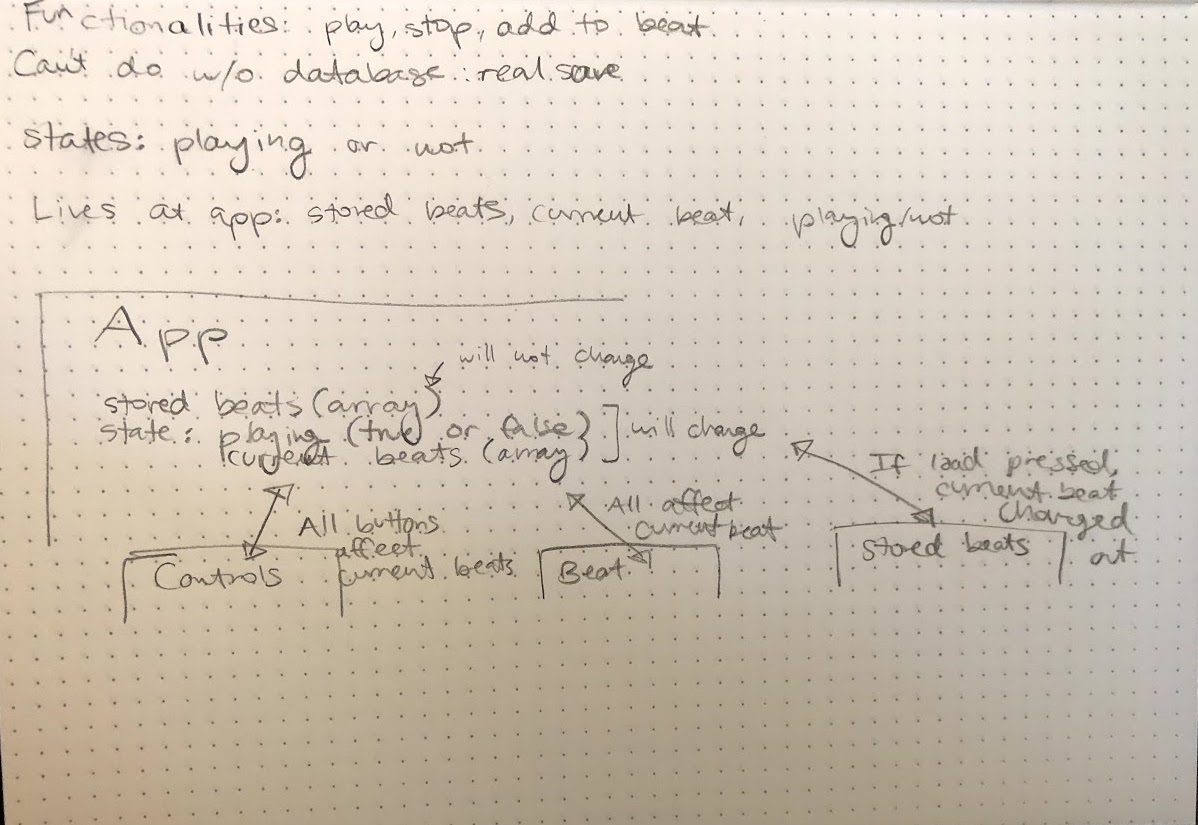 Functionalities: play, stop, add to beat
Can't do w/o database: real save
states: playing or not
Lives at app: stored beats, current beat, playing/not
App
will not change
stored beats (array)
state: playing (true or false)
current beats (array)
] will change
If load pressed,
current beat
changed
out
All buttons
affect
current beats
All affect
current beat
Controls
Beat
Stored beats